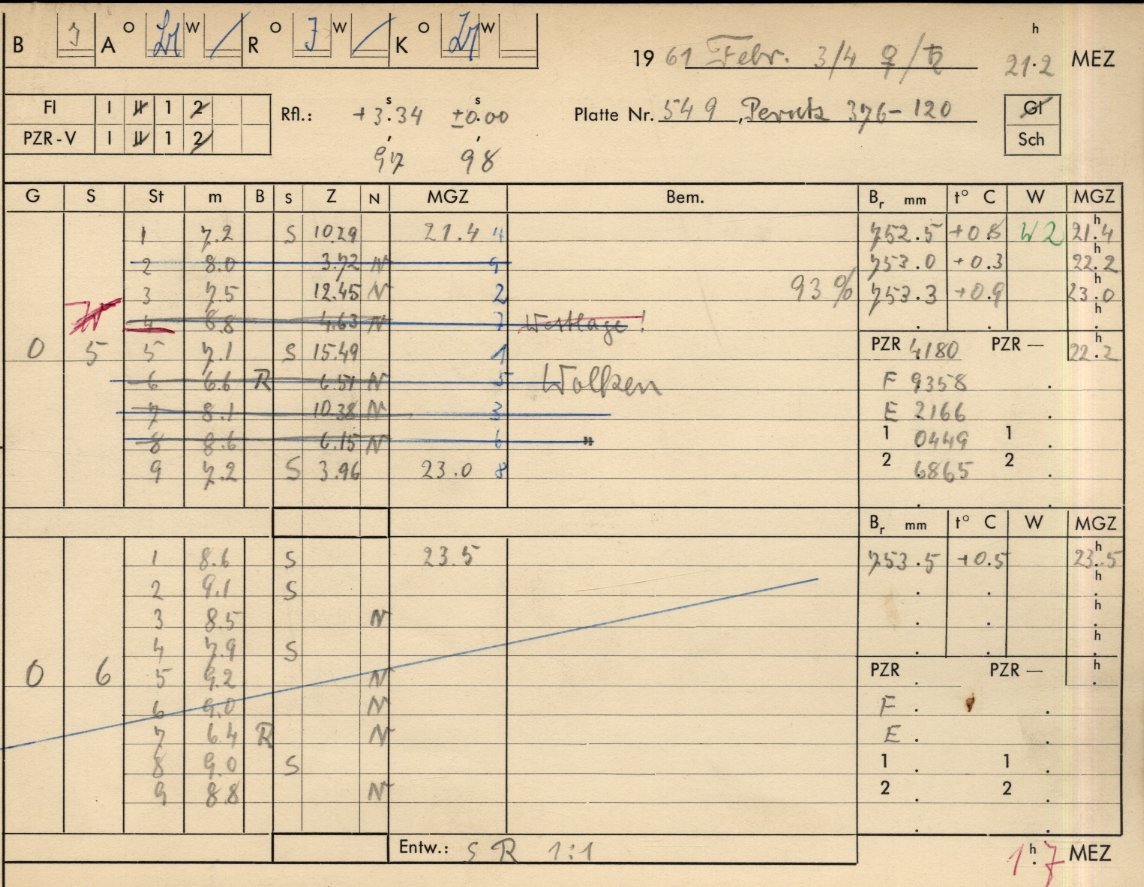 B J A O W R O J W K O W
19 61 Febr. 3/4 ♀/♄ 21.2 h MEZ
Fl I II 1 2 Rfl.: +3.34 s ±0.00 s Platte Nr. 549, Perutz 376-120 Gl
PZR-V I II 1 2 97 98 Sch
G S St m B S Z N MGZ Bem. Br mm t° C W MGZ
1 7.2 S 10.29 21.4 4 752.5 +0.5 W2 21.4 h
2 8.0 3.72 N 9 753.0 +0.3 22.2 h
3 7.5 12.45 N 2 93% 753.3 +0.9 23.0 h
4 8.8 4.63 N 7 Westlage!
0 5 5 7.1 S 15.49 1 PZR 4180 PZR — 22.2 h
6 6.6 R 6.51 N 5 Wolken F 9358
7 8.1 10.38 N 3 E 2166
8 8.6 6.15 N 6 " 1 0449 1
9 7.2 S 3.96 23.0 8 2 6865 2
Br mm t° C W MGZ
1 8.6 S 23.5 753.5 +0.5 23.5 h
2 9.1 S h
3 8.5 N h
4 7.9 S h
0 6 5 9.2 N PZR PZR — h
6 9.0 N F
7 6.4 R N E
8 9.0 S 1 1
9 8.8 N 2 2
Entw.: S R 1:1 1.7 h MEZ